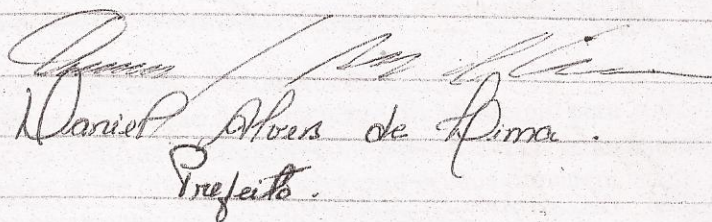 Daniel Alves de Lima.
Prefeito.